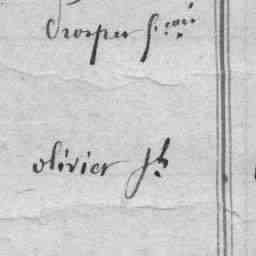 Prosper f.
olivier Jh